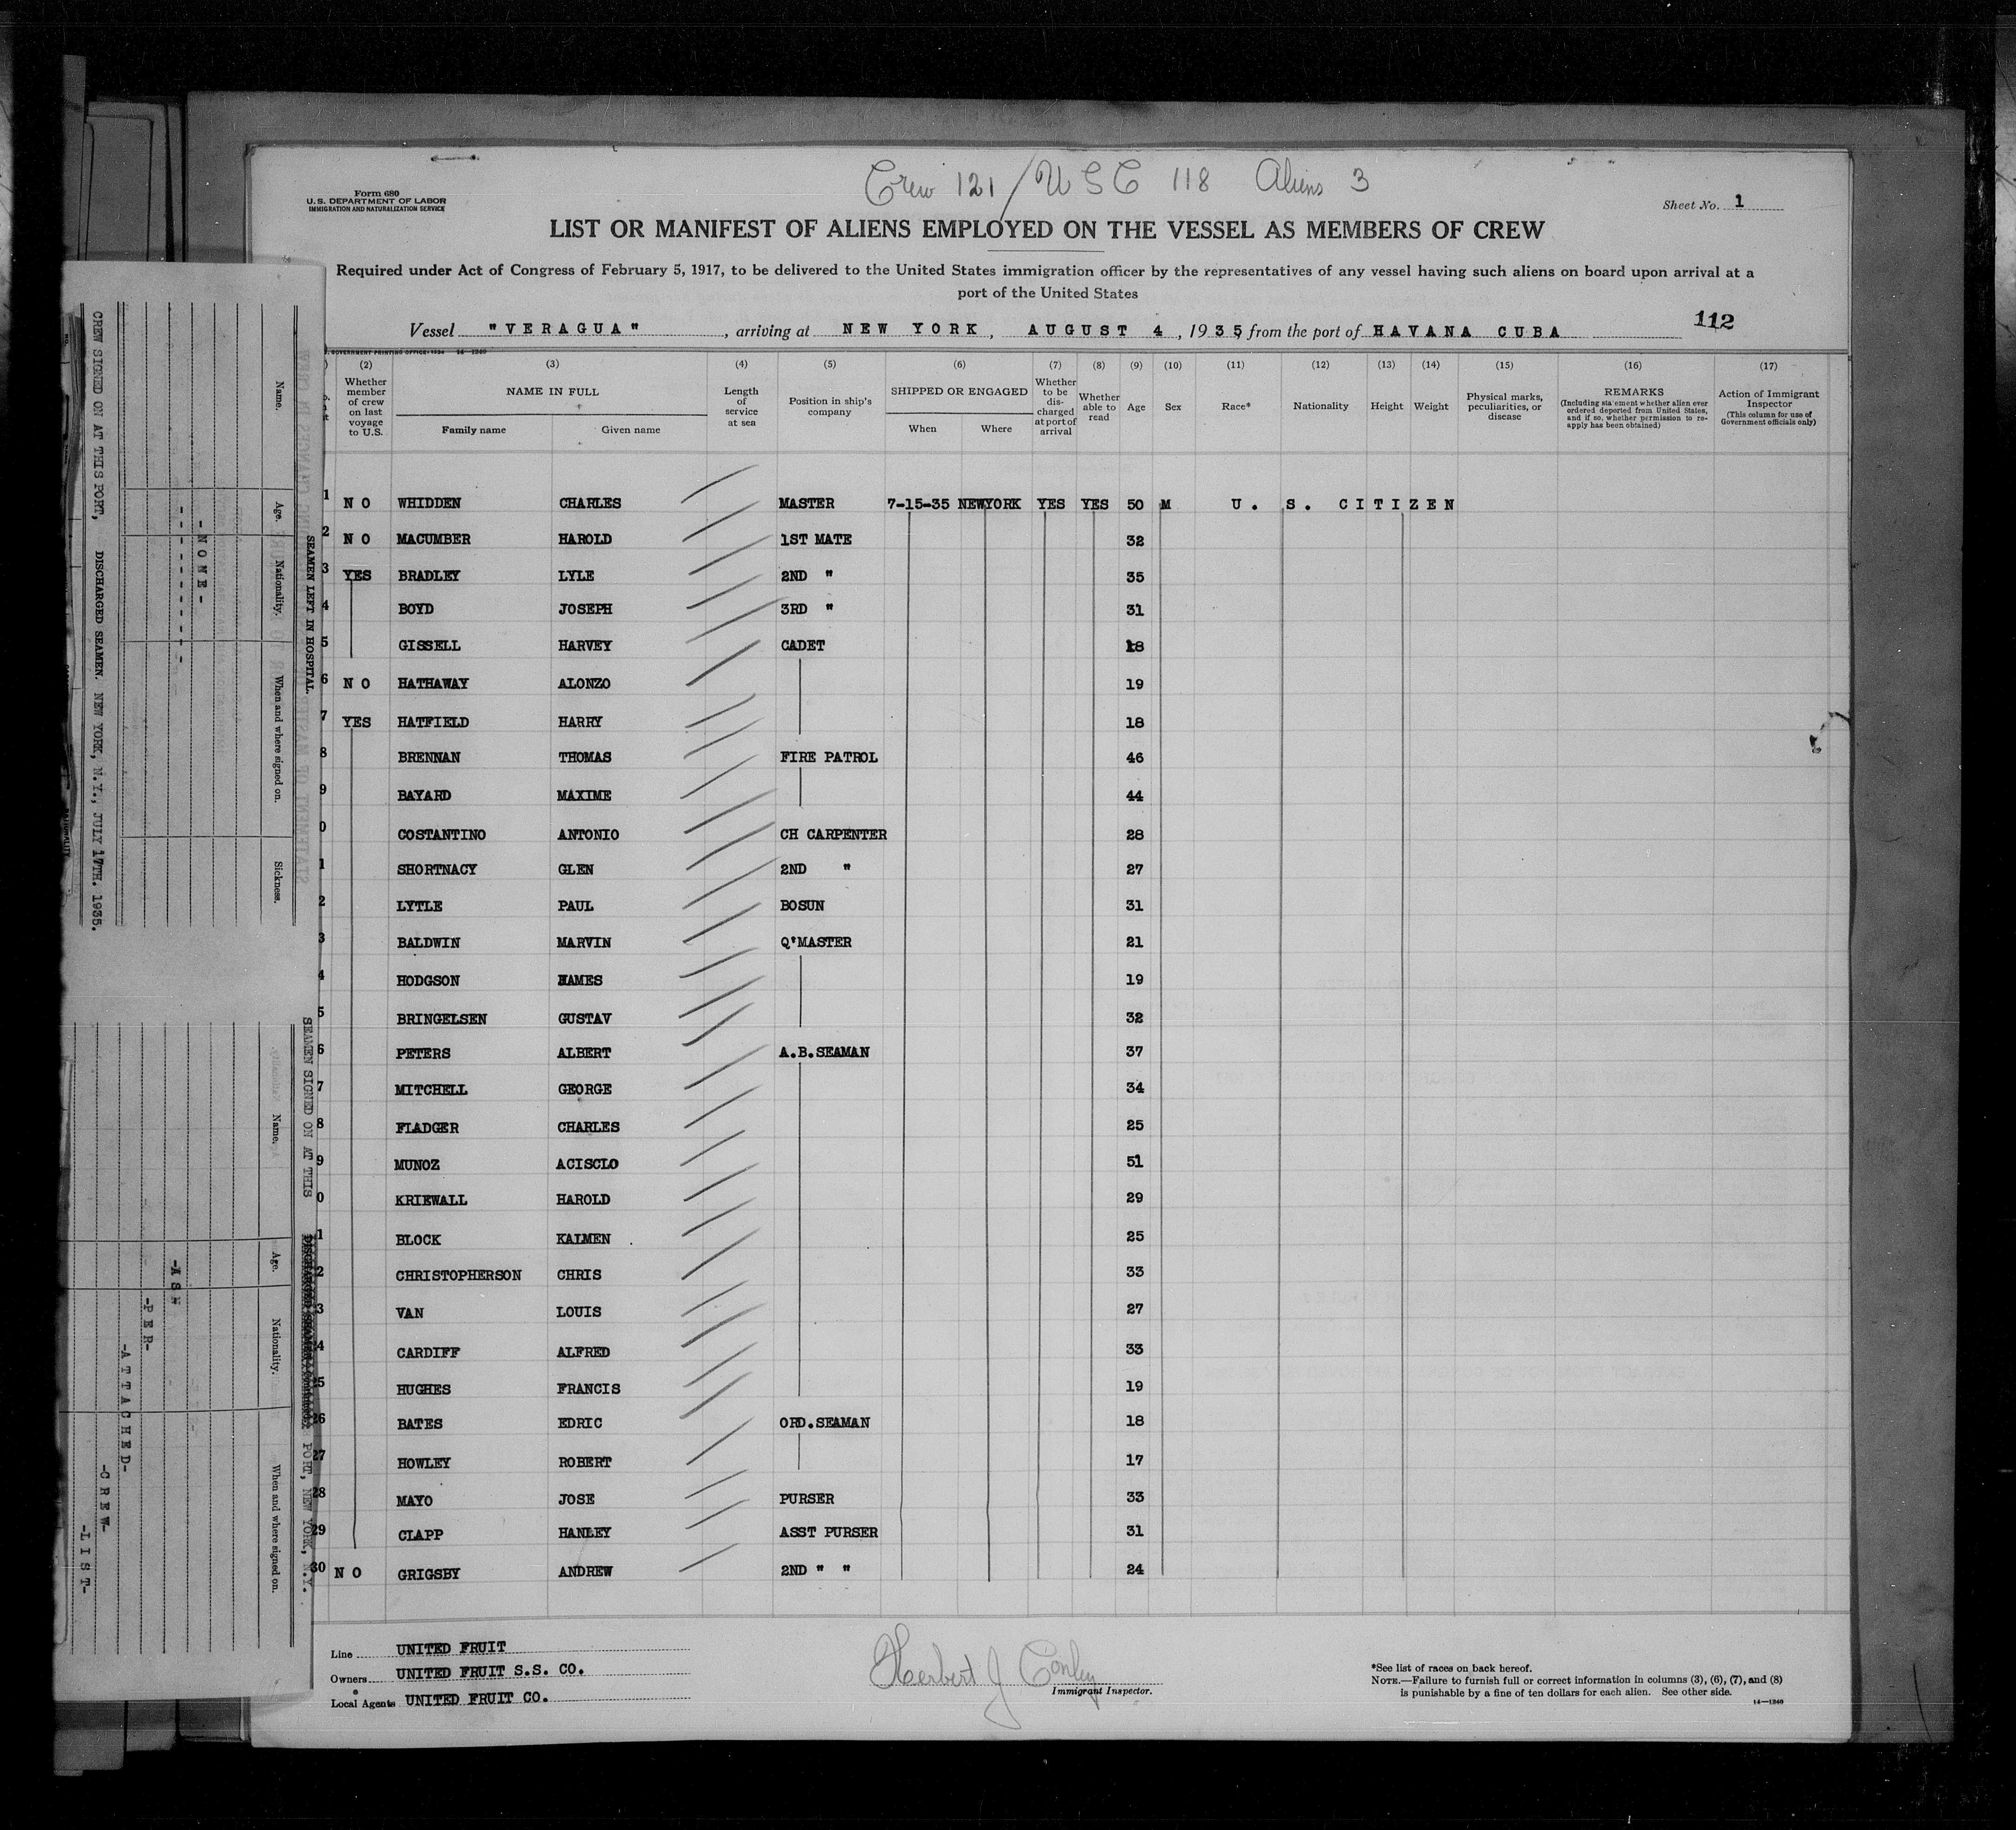 Crew 121 / USC 118 Aliens 3
Form 680
U.S. DEPARTMENT OF LABOR
IMMIGRATION AND NATURALIZATION SERVICE
Sheet No. 1
LIST OR MANIFEST OF ALIENS EMPLOYED ON THE VESSEL AS MEMBERS OF CREW
Required under Act of Congress of February 5, 1917, to be delivered to the United States immigration officer by the representatives of any vessel having such aliens on board upon arrival at a
port of the United States
112
Vessel "VERAGUA", arriving at NEW YORK, AUGUST 4, 1935, from the port of HAVANA CUBA
(2) (3) (4) (5) (6) (7) (8) (9) (10) (11) (12) (13) (14) (15) (16) (17)
Whether member of crew on last voyage to U.S.
NAME IN FULL
Family name Given name
Length of service at sea
Position in ship's company
SHIPPED OR ENGAGED
When Where
Whether to be discharged at port of arrival
Whether able to read
Age
Sex
Race*
Nationality
Height
Weight
Physical marks, peculiarities, or disease
REMARKS
(Including statement whether alien ever ordered deported from United States, and if so, whether permission to re-apply has been obtained)
Action of Immigrant Inspector
(This column for use of Government officials only)
1 NO WHIDDEN CHARLES MASTER 7-15-35 NEWYORK YES YES 50 M U. S. CITIZEN
2 NO MACUMBER HAROLD 1ST MATE 32
3 YES BRADLEY LYLE 2ND " 35
4 BOYD JOSEPH 3RD " 31
5 GISSELL HARVEY CADET 18
6 NO HATHAWAY ALONZO 19
7 YES HATFIELD HARRY 18
8 BRENNAN THOMAS FIRE PATROL 46
9 BAYARD MAXIME 44
0 COSTANTINO ANTONIO CH CARPENTER 28
1 SHORTNACY GLEN 2ND " 27
2 LYTLE PAUL BOSUN 31
3 BALDWIN MARVIN Q'MASTER 21
4 HODGSON HAMES 19
5 BRINGELSEN GUSTAV 32
6 PETERS ALBERT A.B.SEAMAN 37
7 MITCHELL GEORGE 34
8 FLADGER CHARLES 25
9 MUNOZ ACISCLO 51
0 KRIEWALL HAROLD 29
1 BLOCK KALMEN 25
2 CHRISTOPHERSON CHRIS 33
3 VAN LOUIS 27
4 CARDIFF ALFRED 33
25 HUGHES FRANCIS 19
26 BATES EDRIC ORD.SEAMAN 18
27 HOWLEY ROBERT 17
28 MAYO JOSE PURSER 33
29 CLAPP HANLEY ASST PURSER 31
30 NO GRIGSBY ANDREW 2ND " " 24
Line UNITED FRUIT
Owners UNITED FRUIT S.S. CO.
Local Agents UNITED FRUIT CO.
Herbert J Conley
Immigrant Inspector.
*See list of races on back hereof.
NOTE.—Failure to furnish full or correct information in columns (3), (6), (7), and (8)
is punishable by a fine of ten dollars for each alien. See other side.
14—1240
SEAMEN LEFT IN HOSPITAL.
Name. Age. Nationality. When and where signed on. Sickness.
-NONE-
CREW SIGNED ON AT THIS PORT, DISCHARGED SEAMEN. NEW YORK, N.Y., JULY 17TH. 1935.
SEAMEN SIGNED ON AT THIS PORT, NEW YORK, N.Y.
Name. Age. Nationality. When and where signed on.
-PER-
-ATTACHED-
-CREW-
-LIST-